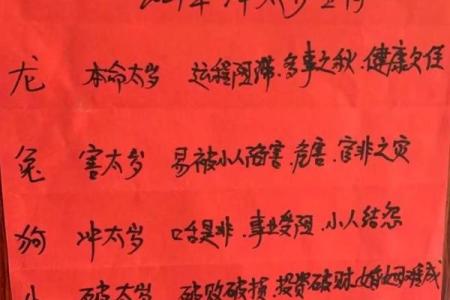 2024年冲太岁生肖
龙 本命太岁 运程阻滞.多事之秋.健康欠佳
兔 害太岁 易被小人陷害.危害.官非之灾
狗 冲太岁 口舌是非.事业受阻.小人结怨
破太岁 破败破损.投资破财.婚姻难成